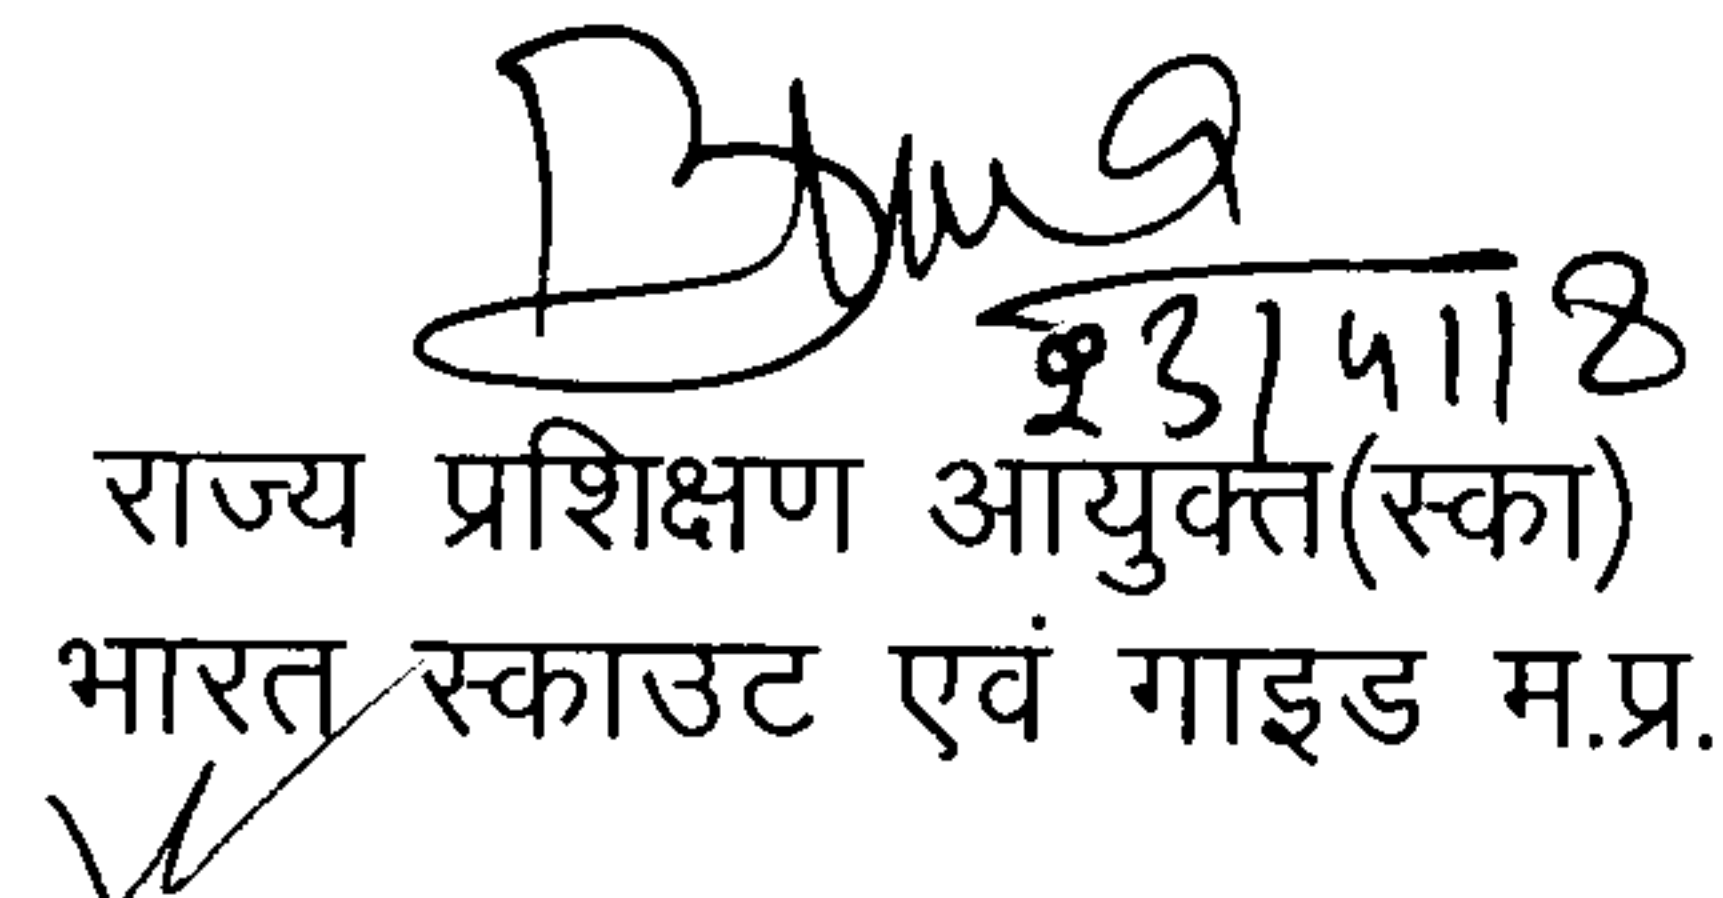 23/5/18
राज्य प्रशिक्षण आयुक्त(स्का)
भारत स्काउट एवं गाइड म.प्र.